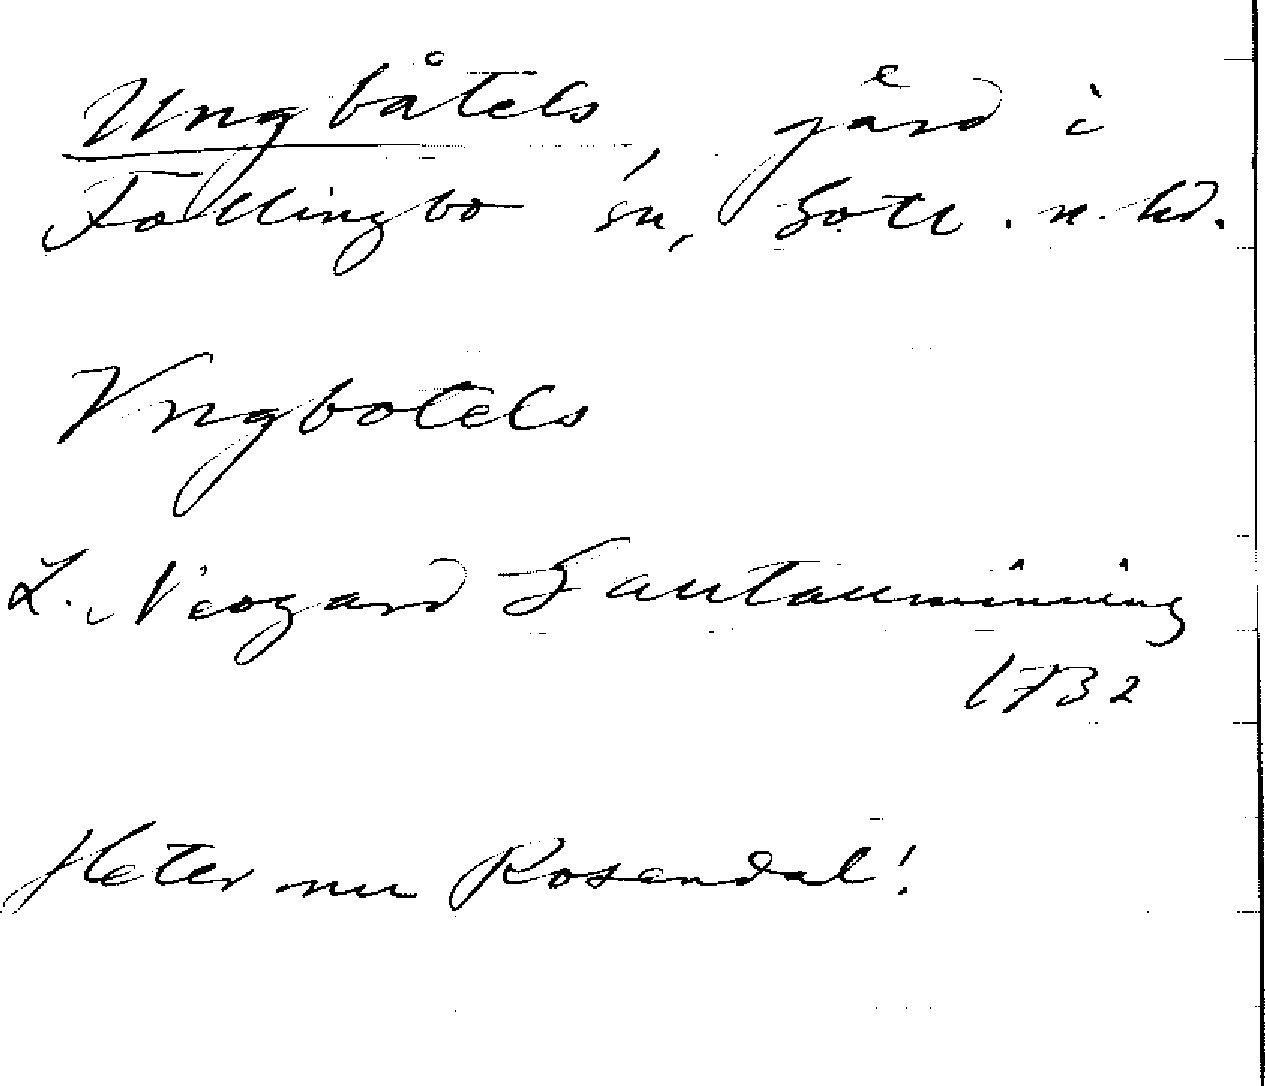 Ungbåtels, gård i
Follingbo sn, Gotl. n. hd.
Vngbotels
L. Neogard Gautauminning
1732
Heter nu Rosendal!